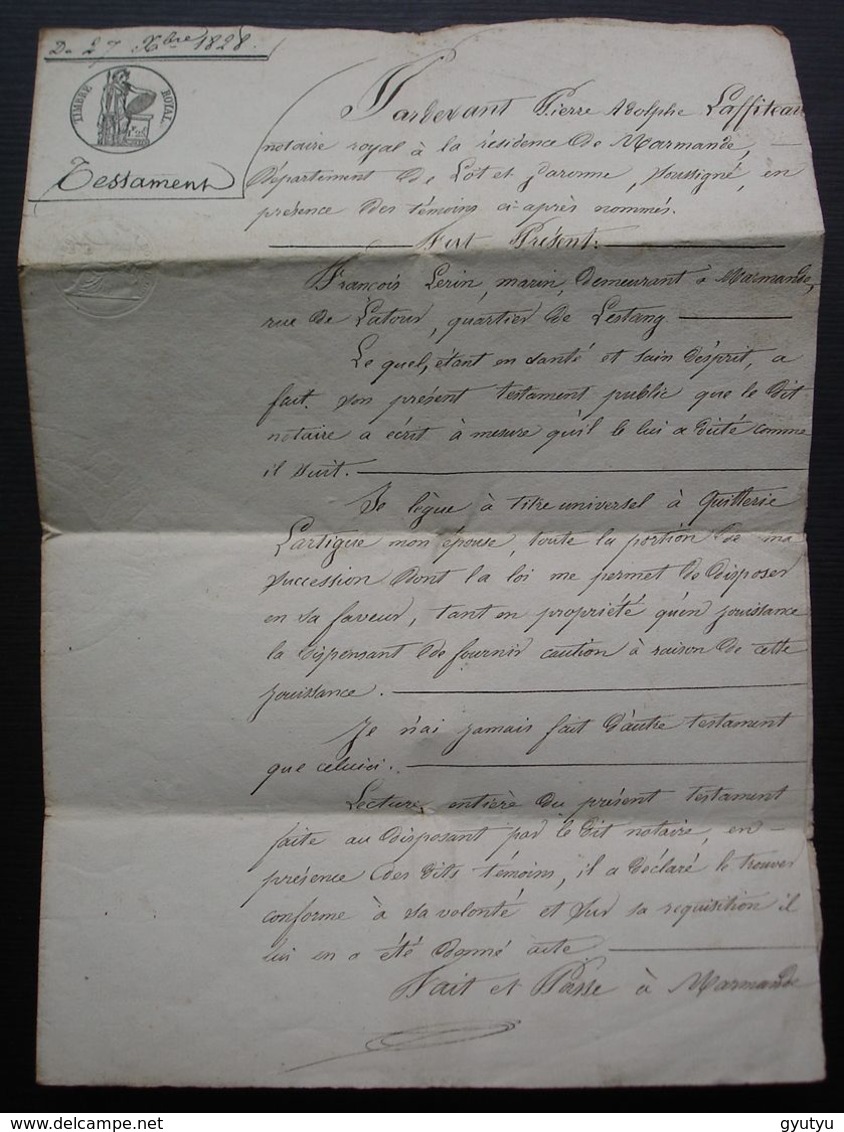 Du 27 Xbre 1828.
TIMBRE ROYAL
Testament
Pardevant Pierre Adolphe Laffiteau
notaire royal à la résidence de Marmande,
département de Lot et Garonne, soussigné, en
présence des témoins ci-après nommés.
Fut Présent:
François Lerin, marin, demeurant à Marmande,
rue de Latour, quartier de Lestang
Le quel, étant en santé et sain d'esprit, a
fait son présent testament public que le dit
notaire a écrit à mesure qu'il le lui a dicté comme
il suit.
Je lègue à titre universel à Quitterie
Lartigue mon épouse, toute la portion de ma
succession dont la loi me permet de disposer
en sa faveur, tant en propriété qu'en jouissance
la dispensant de fournir caution à raison de cette
jouissance.
Je n'ai jamais fait d'autre testament
que celuici.
Lecture entière du présent testament
faite au disposant par le dit notaire, en
présence des dits témoins, il a déclaré le trouver
conforme à sa volonté et sur sa requisition il
lui en a été donné acte
Fait et Passé à Marmande
delcampe.net
gyutyu